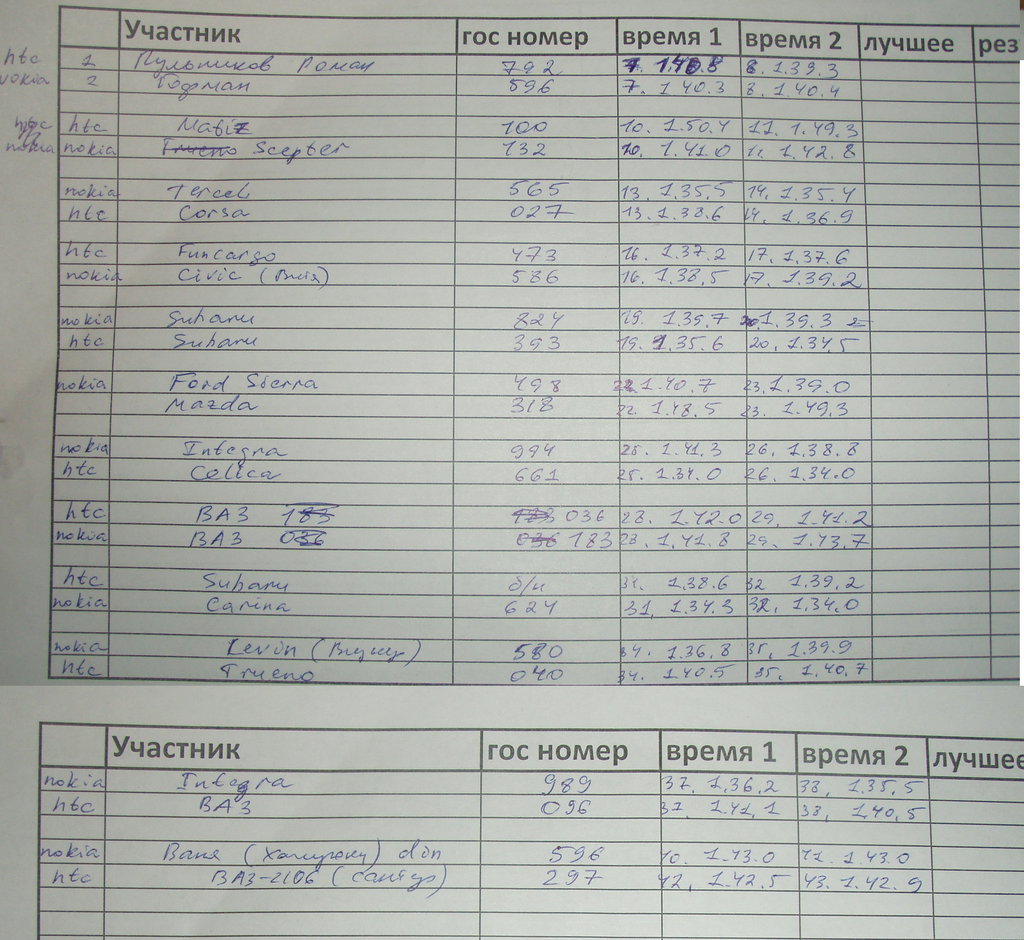 Участник гос номер время 1 время 2 лучшее рез
htc 1 Пульников Роман 792 7. 1.40.8 8. 1.39.3
nokia 2 Гофман 596 7. 1.40.3 8. 1.40.4
htc htc Matiz 100 10. 1.50.4 11. 1.49.3
nokia nokia Trueno Scepter 132 10. 1.41.0 11. 1.42.8
nokia Tercel 565 13. 1.35.5 14. 1.35.4
htc Corsa 027 13. 1.38.6 14. 1.36.9
htc Funcargo 473 16. 1.37.2 17. 1.37.6
nokia Civic (Виля) 586 16. 1.38.5 17. 1.39.2
nokia Subaru 824 19. 1.39.7 20. 1.39.3
htc Subaru 393 19. 1.35.6 20. 1.34.5
nokia Ford Sierra 498 22. 1.40.7 23. 1.39.0
Mazda 318 22. 1.48.5 23. 1.49.3
nokia Integra 994 25. 1.41.3 26. 1.38.8
htc Celica 661 25. 1.34.0 26. 1.34.0
htc ВАЗ 183 183 036 28. 1.42.0 29. 1.41.2
nokia ВАЗ 036 036 183 28. 1.41.8 29. 1.43.7
htc Subaru б/н 31. 1.38.6 32 1.39.2
nokia Carina 624 31. 1.34.3 32. 1.34.0
nokia Levin 580 34. 1.36.8 35. 1.39.9
htc Trueno 040 34. 1.40.5 35. 1.40.7
Участник гос номер время 1 время 2 лучшее
nokia Integra 989 37. 1.36.2 38. 1.35.5
htc ВАЗ 096 37. 1.41.1 38. 1.40.5
nokia Ваня din 596 40. 1.43.0 41. 1.43.0
htc ВАЗ-2106 (сантур) 297 42. 1.42.5 43. 1.42.9